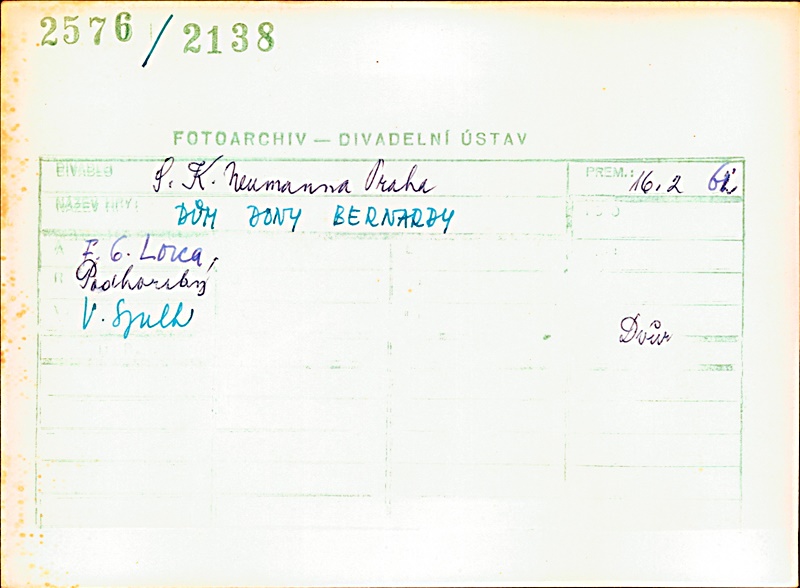 2576 / 2138
FOTOARCHIV — DIVADELNÍ ÚSTAV
DIVADLO S. K. Neumanna Praha PREM.: 16.2
NÁZEV HRY: DŮM DONY BERNARDY
F. G. Lorca,
R Podhorský
V. Špulk
Dvůr